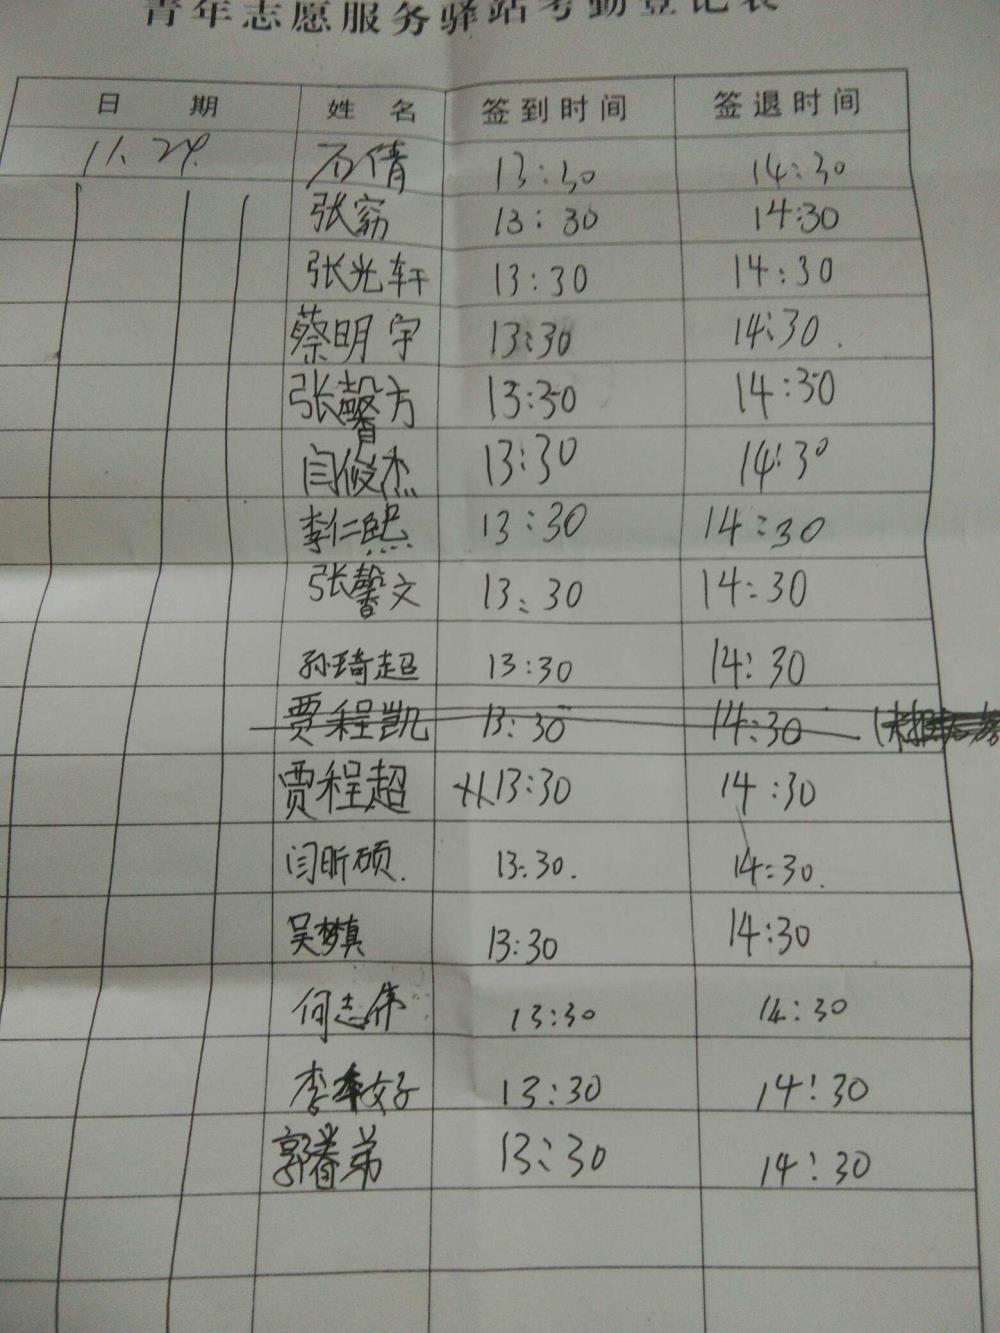 青年志愿服务驿站考勤登记表
日 期 姓 名 签到时间 签退时间
11.29. 石倩 13:30 14:30
张窈 13:30 14:30
张光轩 13:30 14:30
蔡明宇 13:30 14:30.
张馨方 13:30 14:30
闫俊杰 13:30 14:30
李仁熙 13:30 14:30
张馨文 13:30 14:30
孙琦超 13:30 14:30
贾程凯 13:30 14:30
贾程超 13:30 14:30
闫昕硕. 13:30. 14:30.
吴梦真 13:30 14:30
何志伟 13:30 14:30
李好 13:30 14:30
郭春弟 13:30 14:30